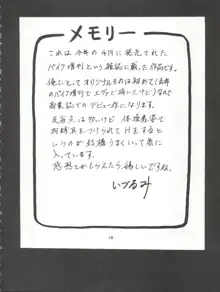 メモリー
これは今年の4月に発売された
パイク増刊という雑誌に載った作品です。
俺にとってオリジナルものは初めて(去年
のパイク増刊で エヴァ で描いたけど)なので
商業誌でのデビュー作になります。
反省点は多いけど 体操着姿で
をつけられて Hをする と
いうのが結構うまくいって気に
入っています。
感想とかもらえたら嬉しいですね。
いづるみ
12